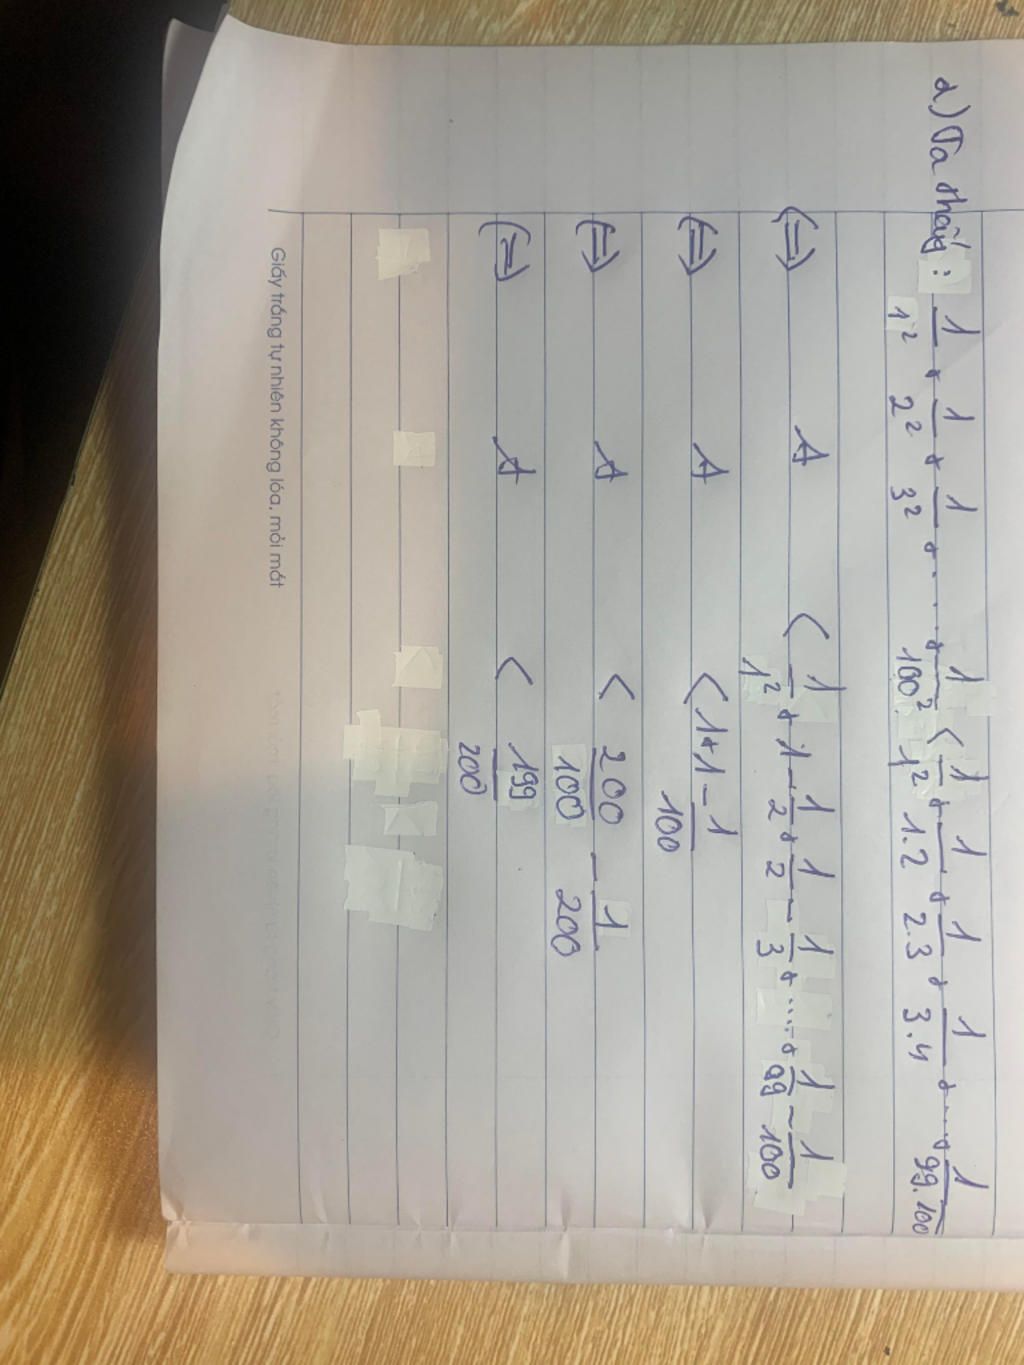 a) Ta thấy: 1/1² + 1/2² + 1/3² + .... + 1/100² < 1/1² + 1/1.2 + 1/2.3 + 1/3.4 + .... + 1/99.100
(=) A < 1/1² + 1 - 1/2 + 1/2 - 1/3 + .... + 1/99 - 1/100
(=) A < 1 + 1 - 1/100
(=) A < 200/100 - 1/200
(=) A < 199/200
Giấy trắng tự nhiên không lóa, mỏi mắt